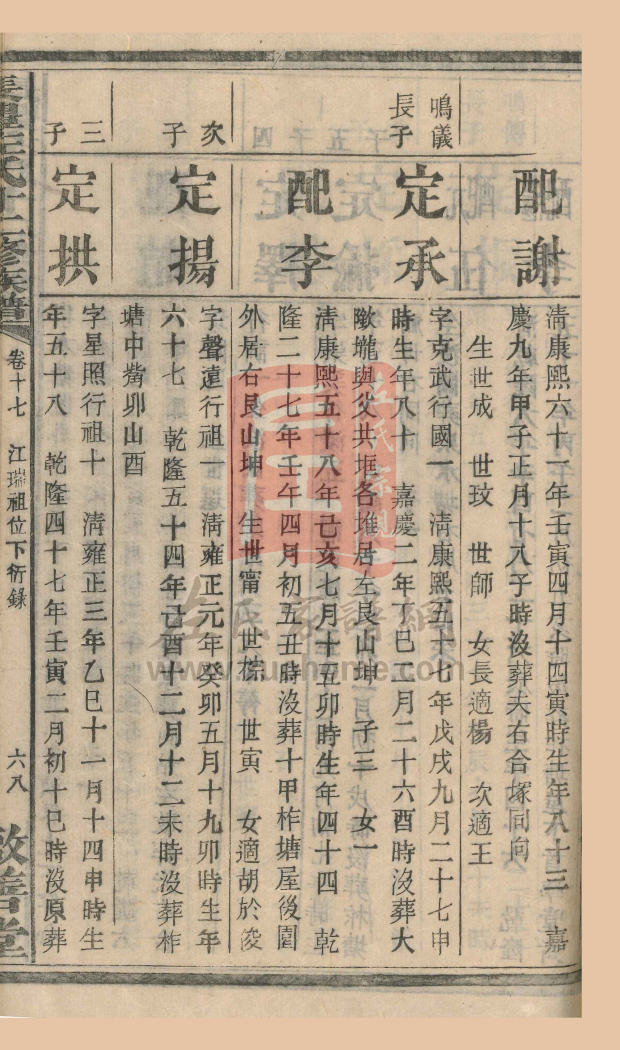 配謝
清康熙六十一年壬寅四月十四寅時生年八十三 嘉
慶九年甲子正月十八子時沒葬夫右合塚同向
生世成 世玟 世師 女長適楊 次適王
鳴儀
長子
定承
字克武行國一 清康熙五十七年戊戌九月二十七申
時生年八十 嘉慶二年丁巳二月二十六酉時沒葬大
壠與父共堆各堆居左艮山坤 子三 女一
配李
清康熙五十八年己亥七月十五卯時生年四十四 乾
隆二十七年壬午四月初五丑時沒葬十甲柞塘屋後園
外居右艮山坤 生世甯 世棕 世寅 女適胡於
次
子
定揚
字聲遠行祖一 清雍正元年癸卯五月十九卯時生年
六十七 乾隆五十四年己酉十二月十二未時沒葬柞
塘中觜卯山酉
三
子
定拱
字星照行祖十 清雍正三年乙巳十一月十四申時生
年五十八 乾隆四十七年壬寅二月初十巳時沒原葬
氏十二修族譜
卷十七 江瑞祖位下衍錄
六八
善堂